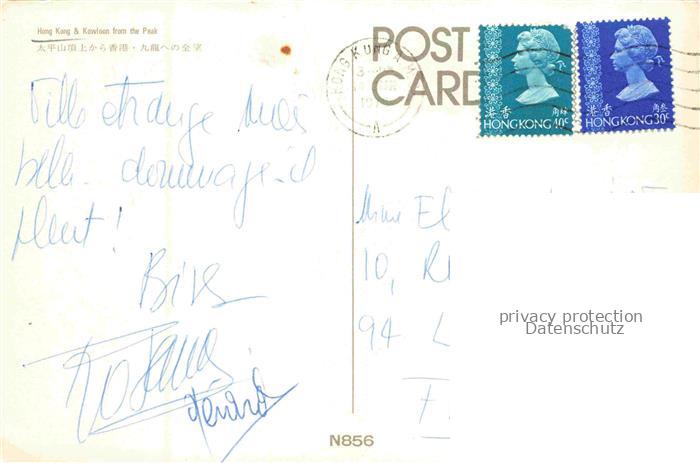 Hong Kong & Kowloon from the Peak
太平山頂上から香港・九龍への全望
POST
CARD
HONG KONG
A
香港 角肆
HONG KONG 40c
香港 角叁
HONG KONG 30c
Ville étrange mais
belle - dommage il
pleut !
Bises
Gérard
Mme El
10, R
94 L
F
privacy protection
Datenschutz
N856